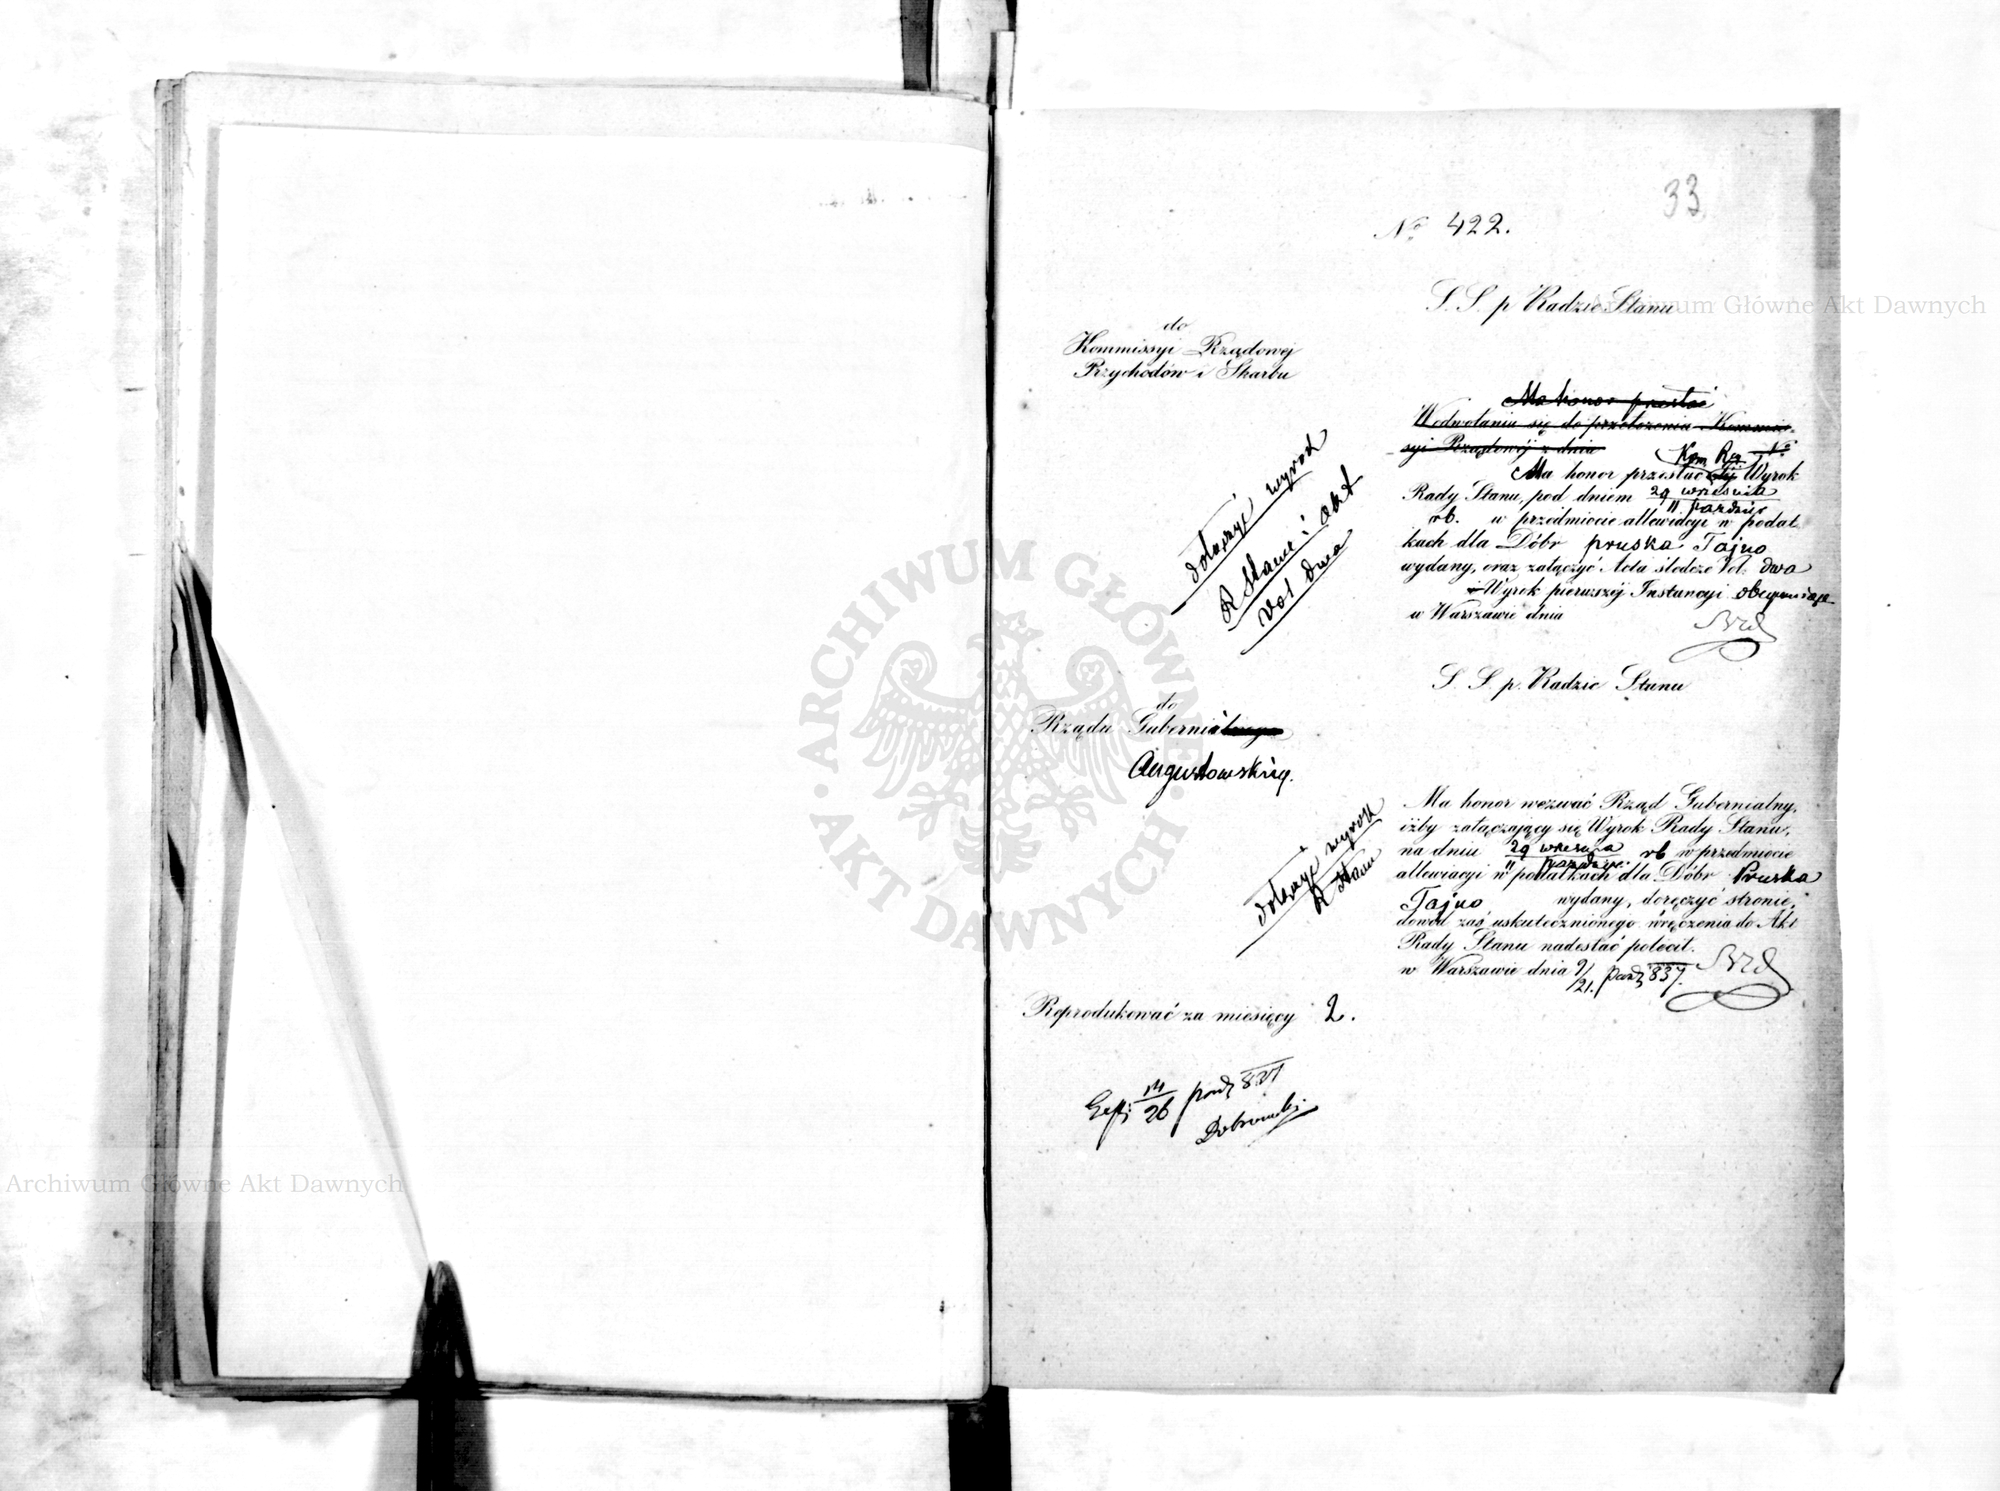 33
Nº 422.
S. S. p Radzie Stanu
do
Kommissyi Rządowej
Przychodów i Skarbu
Ma honor przesłać
W odwołaniu się do przełożenia Kommis-
syi Rządowéj z dnia Nº
Kom Rz
Ma honor przesłać Jéj Wyrok
Rady Stanu, pod dniem 29 września
11 paździer
rb. w przedmiocie allewiacyi w podat
kach dla Dóbr pruska Tajno
wydany, oraz załączyć Acta śledcze Vol. dwa
i Wyrok pierwszéj Instancyi obejmujące
w Warszawie dnia
dołączyć wyrok
R Stanu i akt
vol dwa
S. S. p. Radzie Stanu
do
Rządu Gubernialnego
Augustowskieg.
Ma honor wezwać Rząd Gubernialny,
iżby załączający się Wyrok Rady Stanu,
na dniu 29 września rb w przedmiocie
11 paździer.
allewiacyi w podatkach dla Dóbr Pruska
Tajno wydany, doręczyć stronie,
dowód zaś uskutecznionego wręczenia do Akt
Rady Stanu nadesłać polecił.
w Warszawie dnia 9/21. paźdz 837.
dołączyć wyrok
R Stanu
Reprodukować za miesięcy 2.
14/26 paźdz 837
Dobrowolski
ARCHIWUM GŁÓWNE AKT DAWNYCH
Archiwum Główne Akt Dawnych
Archiwum Główne Akt Dawnych